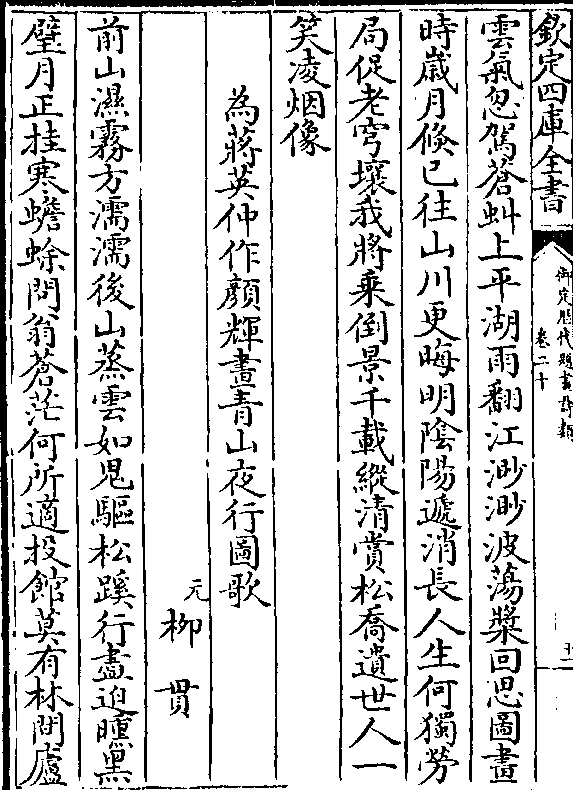 欽定四庫全書
御定歷代題畫詩類
卷二十
雲氣忽駕蒼虯上平湖雨翻江渺渺波蕩槳回思圖畫
時歲月倏已往山川更晦明陰陽遞消長人生何獨勞
局促老穹壤我將乘倒景千載縱清賞松喬遺世人一
笑凌烟像
為蔣英仲作顏輝畫青山夜行圖歌
元 柳貫
前山濕霧方濡濡後山蒸雲如鬼驅松蹊行盡迫曛黑
璧月正挂寒蟾蜍問翁蒼茫何所適投館莫有林間廬